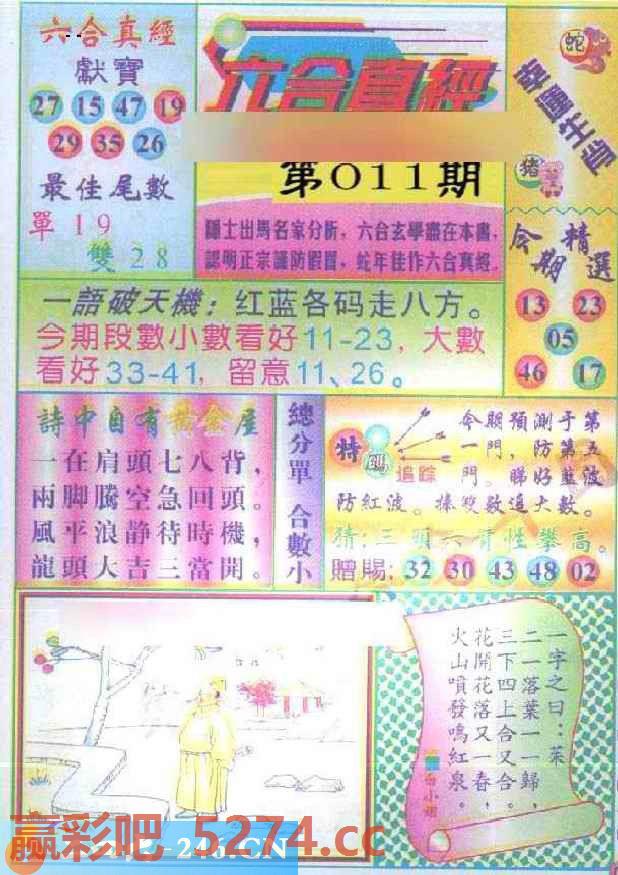 六合真經
獻寶
27 15 47 19
29 35 26
最佳尾數
單19
雙28
六合真經
第011期
隱士出馬名家分析，六合玄學盡在本書，
認明正宗謹防假冒，蛇年佳作六合真經。
蛇
猪
今期精選
13 23
05
46 17
一語破天機：红蓝各码走八方。
今期段數小數看好11-23，大數
看好33-41，留意11、26。
詩中自有黃金屋
一在肩頭七八背，
兩脚騰空急回頭。
風平浪静待時機，
龍頭大吉三當開。
總分單 合數小
特碼
追踪
今期預測于第
一門，防第五
門。睇好藍波
防紅波。揍双数追大數。
猜：三頭六肖性攀高。
贈賜：32 30 43 48 02
一字之曰：菜
二一落葉一一歸，
三下四上合又合。
花開花落又一春，
火山噴發鳴紅泉。
赢彩吧 5274.cc
246.CN